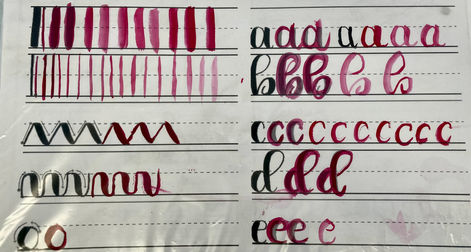 aaa aaaa
bbb b b
cccccccccc
ddd
eee e